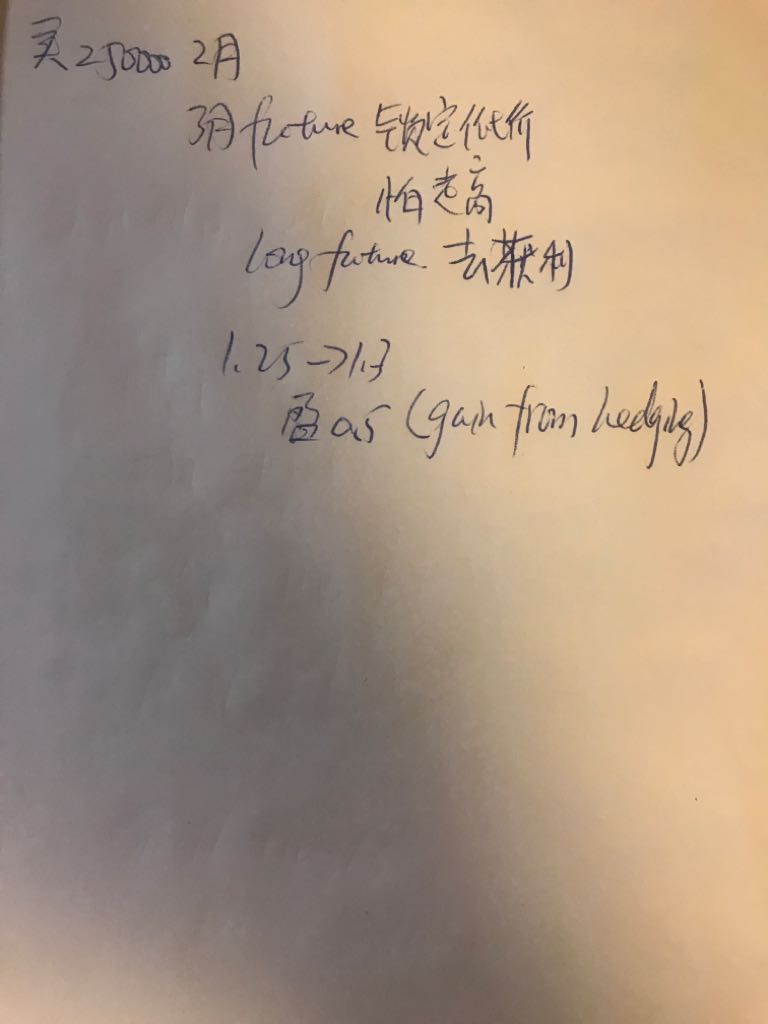 买250000 2月
3月future 锁定低价
怕走高
long future 去获利
1.25->1.3
盈0.5 (gain from hedging)